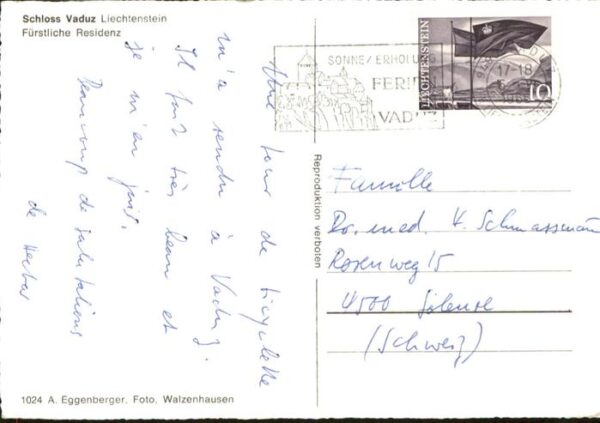 Schloss Vaduz Liechtenstein
Fürstliche Residenz
Une tour de bicyclette
m'a rendu à Vaduz.
Il fait très beau et
je m'en jouis.
Beaucoup de salutations
de Herbar
1024 A. Eggenberger. Foto. Walzenhausen
Reproduktion verboten
SONNE/ERHOLUNG
FERIEN
VADUZ
17-18
LIECHTENSTEIN
10
Famille
Dr. med. H. Schmassmann
Rosenweg 15
4500 Soleure
(Schweiz)